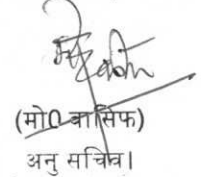 (मो0 वासिफ)
अनु सचिव।